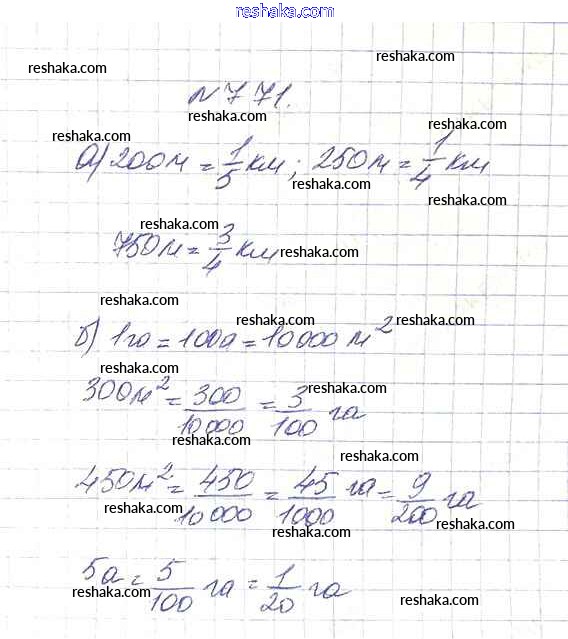 reshaka.com
reshaka.com
reshaka.com
№771.
reshaka.com
reshaka.com
reshaka.com
а) 200 м = 1/5 км; 250 м = 1/4 км
reshaka.com
reshaka.com
reshaka.com
750 м = 3/4 км
reshaka.com
reshaka.com
reshaka.com
reshaka.com
б) 1 га = 100 а = 10 000 м²
reshaka.com
reshaka.com
300 м² = 300/10 000 = 3/100 га
reshaka.com
reshaka.com
reshaka.com
450 м² = 450/10 000 = 45/1000 га = 9/200 га
reshaka.com
reshaka.com
5 а = 5/100 га = 1/20 га
reshaka.com
reshaka.com